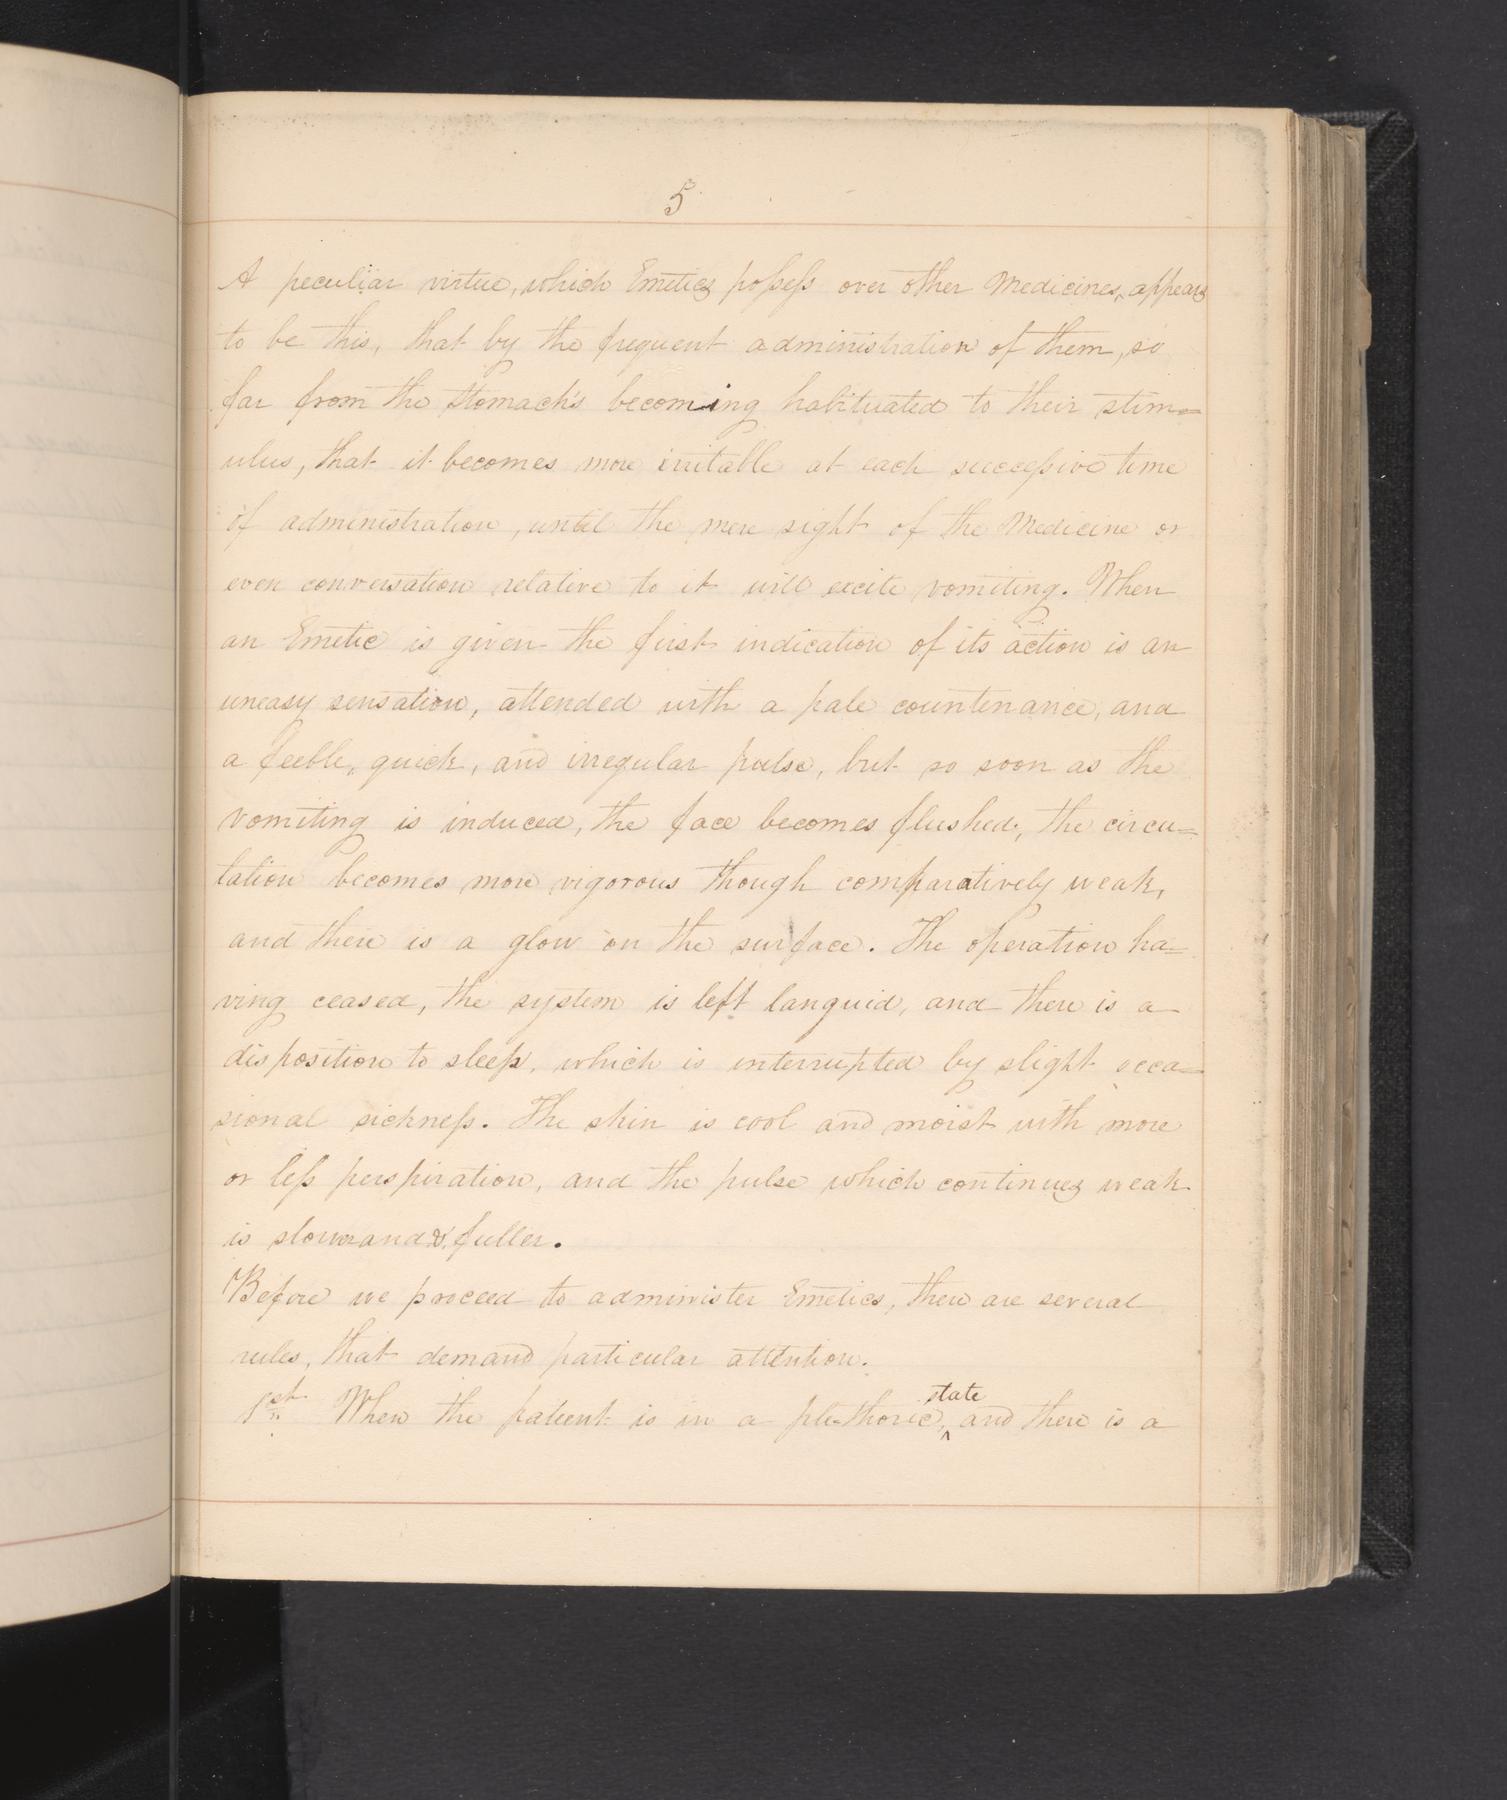 5
A peculiar virtue, which Emetics possess over other Medicines, appears
to be this, that by the frequent administration of them, so
far from the stomach's becoming habituated to their stim=
ulus, that it becomes more irritable at each successive time
of administration, until the mere sight of the Medicine or
even conversation relative to it will excite vomiting. When
an Emetic is given the first indication of its action is an
uneasy sensation, attended with a pale countenance, and
a feeble, quick, and irregular pulse, but so soon as the
vomiting is induced, the face becomes flushed, the circu=
lation becomes more vigorous though comparatively weak,
and there is a glow on the surface. The operation ha=
ving ceased, the system is left languid, and there is a
disposition to sleep, which is interrupted by slight occa=
sional sickness. The skin is cool and moist with more
or less perspiration, and the pulse which continues weak
is slower and fuller.
Before we proceed to administer Emetics, there are several
rules, that demand particular attention.
1st When the patient is in a plethoric state, and there is a